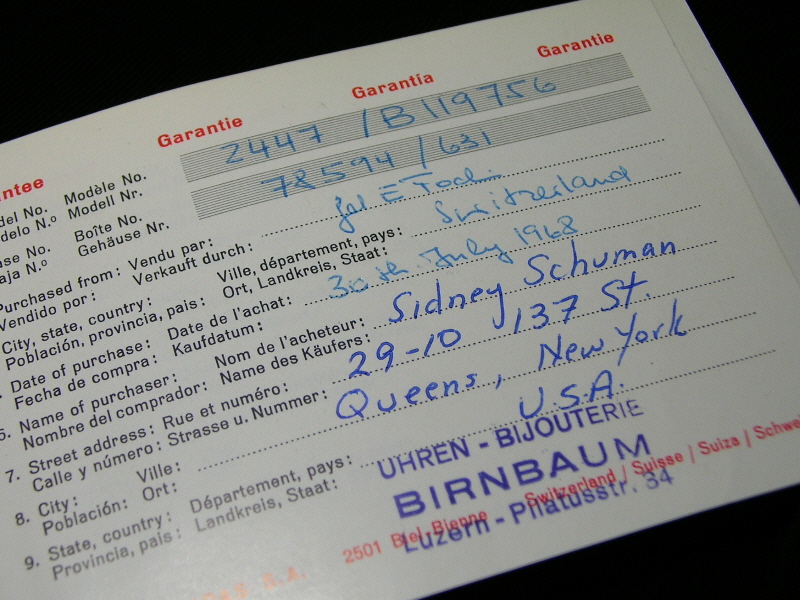 ntee Garantie Garantia Garantie
del No. Modèle No. 2447 / B119756
delo N.º Modell Nr.
ase No. Boîte No. 78594 / 631
aja N.º Gehäuse Nr.
Purchased from: Vendu par:
Vendido por: Verkauft durch:
City, state, country: Ville, département, pays: Switzerland
Población, provincia, pais: Ort, Landkreis, Staat:
Date of purchase: Date de l'achat: 30th. July 1968
Fecha de compra: Kaufdatum:
6. Name of purchaser: Nom de l'acheteur: Sidney Schuman
Nombre del comprador: Name des Käufers:
7. Street address: Rue et numéro: 29-10 137 St.
Calle y número: Strasse u. Nummer:
8. City: Ville: Queens, New York
Población: Ort:
9. State, country: Département, pays: U.S.A.
Provincia, pais: Landkreis, Staat:
UHREN - BIJOUTERIE
BIRNBAUM
Luzern - Pilatusstr. 34
S.A. 2501 Biel-Bienne Switzerland / Suisse / Suiza / Schwei